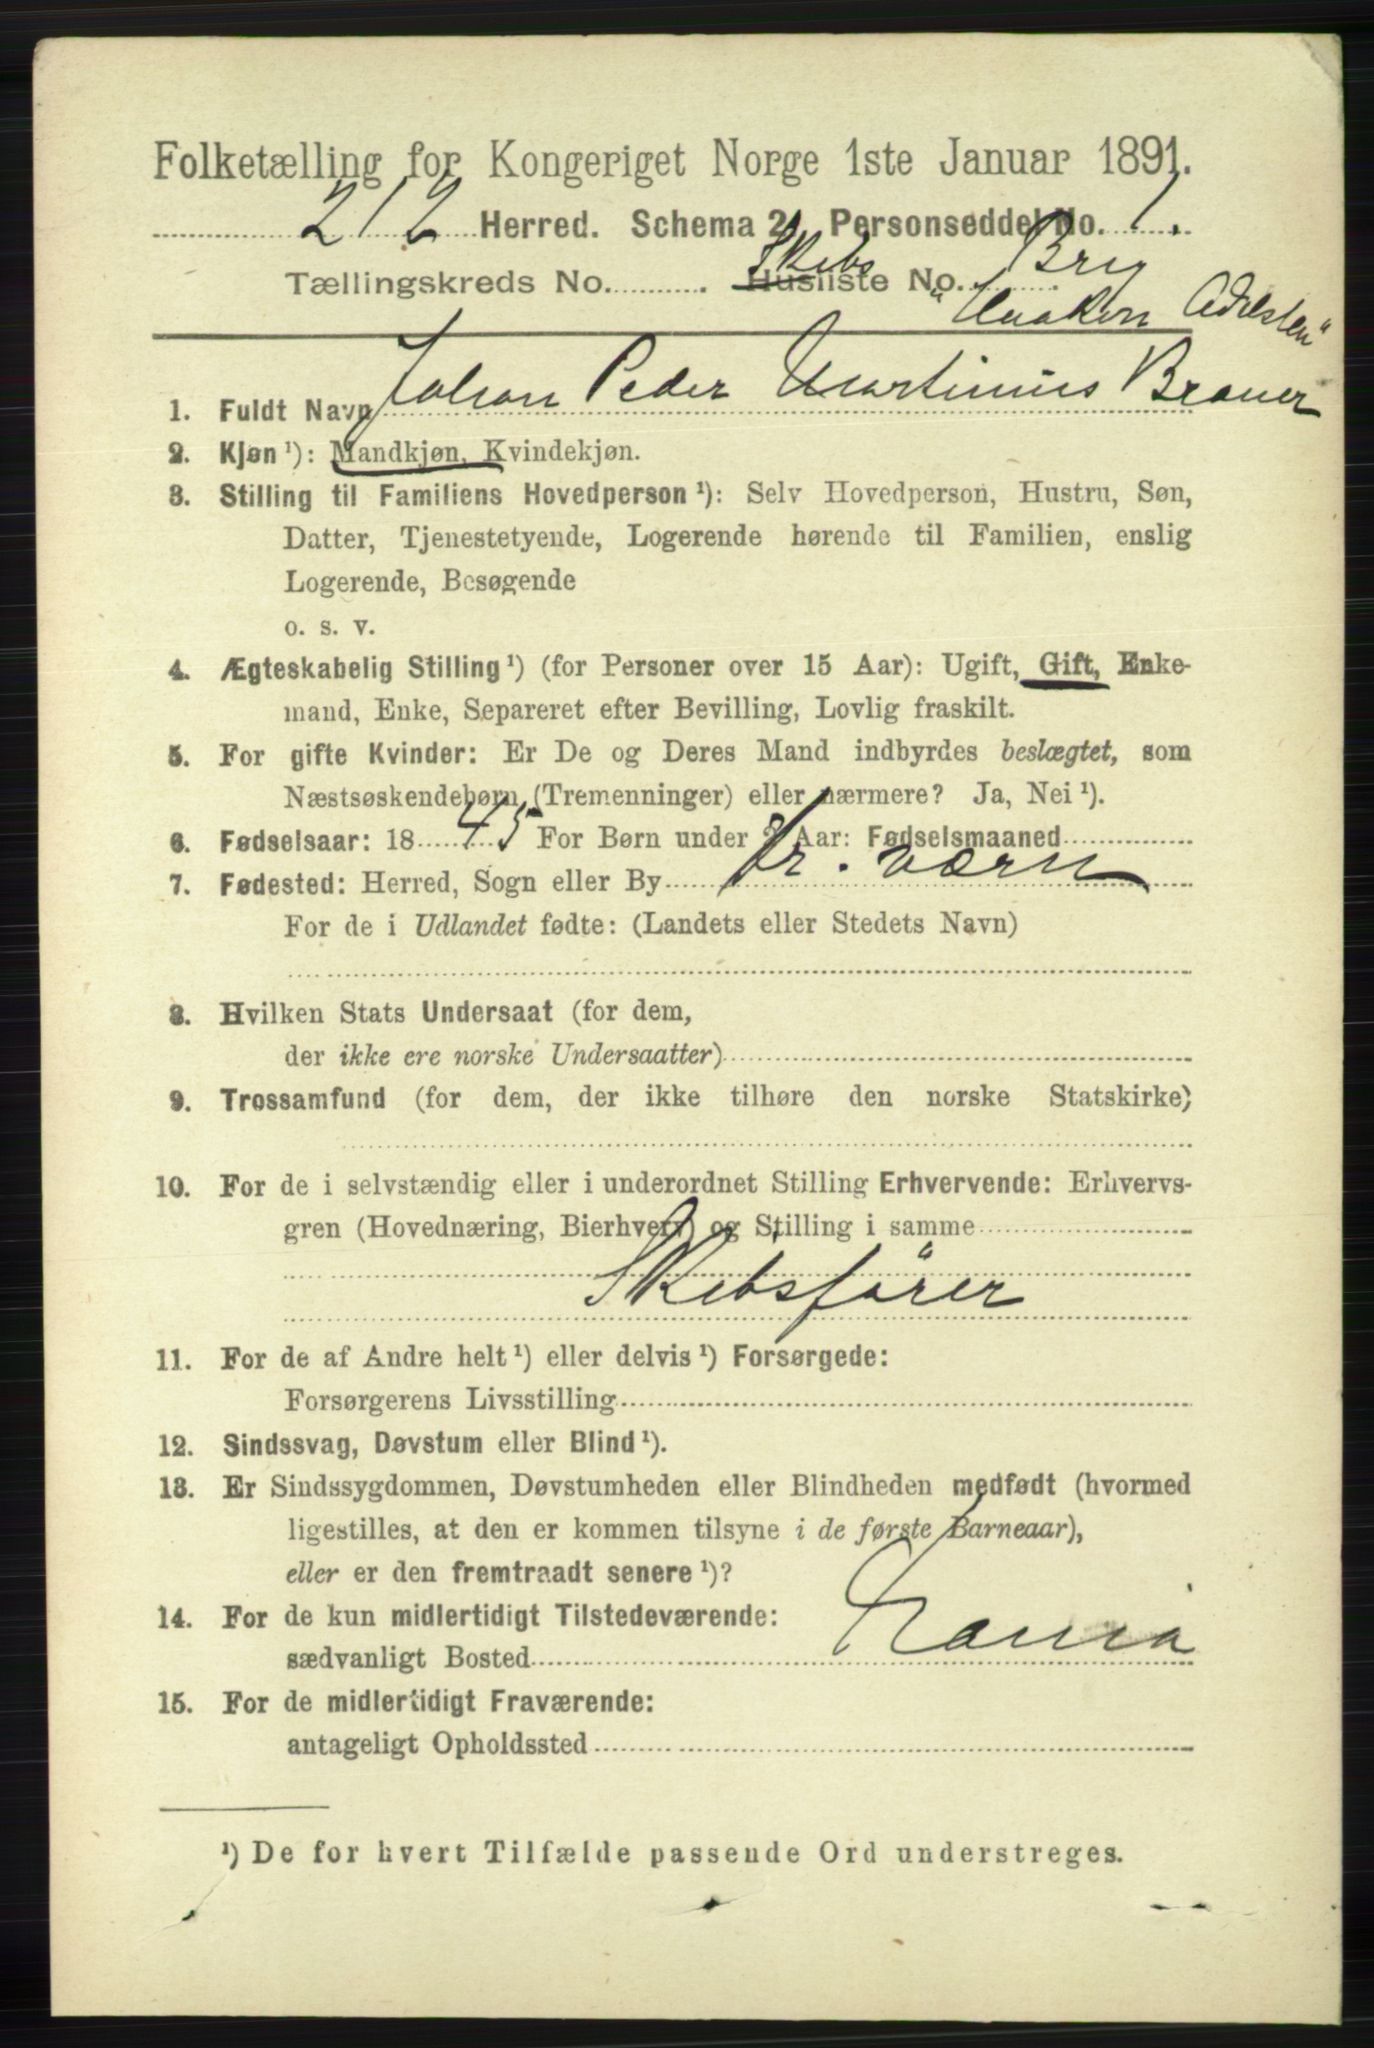 Folketælling for Kongeriget Norge 1ste Januar 1891.
212 Herred. Schema 2. Personseddel No. 1.
Tællingskreds No. . Skibs Husliste No. Brig
"Haakon Adelsten"
1. Fuldt Navn Johan Peder Martinius Brauer
2. Kjøn ¹): Mandkjøn, Kvindekjøn.
3. Stilling til Familiens Hovedperson ¹): Selv Hovedperson, Hustru, Søn,
Datter, Tjenestetyende, Logerende hørende til Familien, enslig
Logerende, Besøgende
o. s. v.
4. Ægteskabelig Stilling ¹) (for Personer over 15 Aar): Ugift, Gift, Enke-
mand, Enke, Separeret efter Bevilling, Lovlig fraskilt.
5. For gifte Kvinder: Er De og Deres Mand indbyrdes beslægtet, som
Næstsøskendebørn (Tremenninger) eller nærmere? Ja, Nei ¹).
6. Fødselsaar: 18 45 For Børn under 2 Aar: Fødselsmaaned
7. Fødested: Herred, Sogn eller By Fr. værn
For de i Udlandet fødte: (Landets eller Stedets Navn)
8. Hvilken Stats Undersaat (for dem,
der ikke ere norske Undersaatter)
9. Trossamfund (for dem, der ikke tilhøre den norske Statskirke)
10. For de i selvstændig eller i underordnet Stilling Erhvervende: Erhvervs-
gren (Hovednæring, Bierhverv) og Stilling i samme
Skibsfører
11. For de af Andre helt ¹) eller delvis ¹) Forsørgede:
Forsørgerens Livsstilling
12. Sindssvag, Døvstum eller Blind ¹).
13. Er Sindssygdommen, Døvstumheden eller Blindheden medfødt (hvormed
ligestilles, at den er kommen tilsyne i de første Barneaar),
eller er den fremtraadt senere ¹)?
14. For de kun midlertidigt Tilstedeværende:
sædvanligt Bosted
15. For de midlertidigt Fraværende:
antageligt Opholdssted
¹) De for hvert Tilfælde passende Ord understreges.